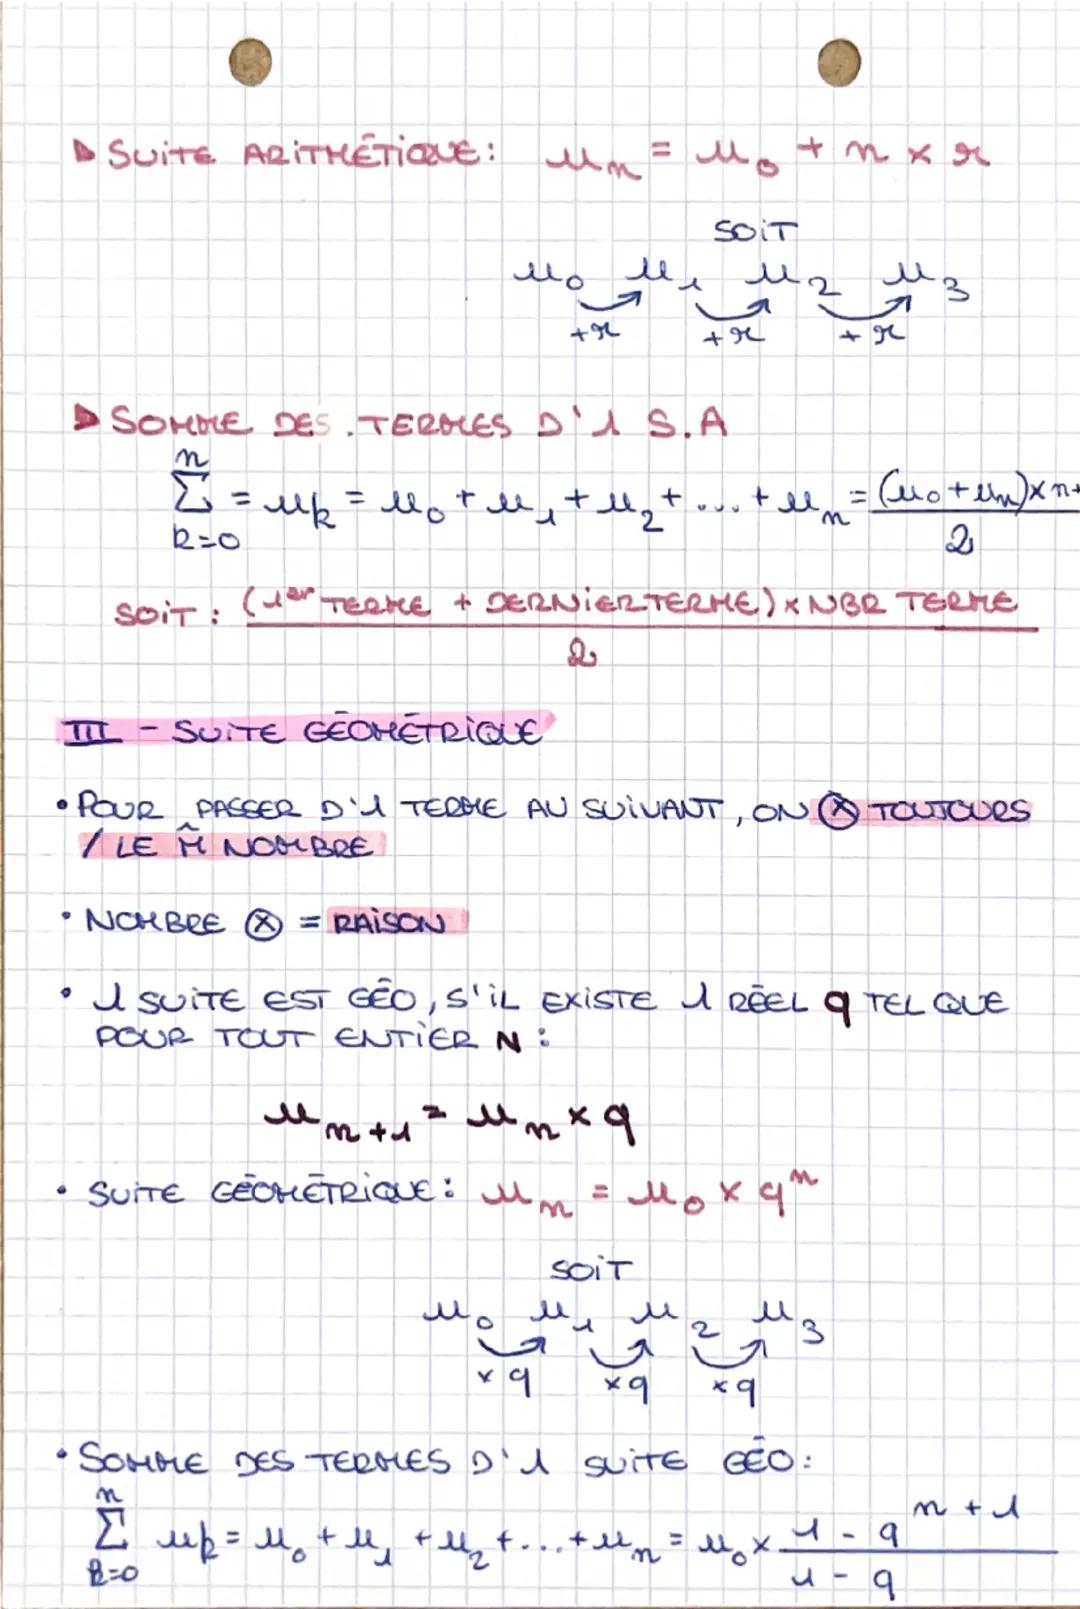 ▶ SUITE ARITHMÉTIQUE : Un = U0 + n × r
SOIT
U0 U1 U2 U3
+r +r +r
▶ SOMME DES TERMES D'1 S.A
n
Σ = Uk = U0 + U1 + U2 + ... + Un = (U0 + Un) × n+
k=0 2
SOIT : (1er TERME + DERNIER TERME) × NBR TERME
2
III - SUITE GÉOMÉTRIQUE
• POUR PASSER D'1 TERME AU SUIVANT, ON ⊗ TOUJOURS
/ LE M̂ NOMBRE
• NOMBRE ⊗ = RAISON
• 1 SUITE EST GÉO, S'IL EXISTE 1 RÉEL q TEL QUE
POUR TOUT ENTIER N :
Un+1 = Un × q
• SUITE GÉOMÉTRIQUE : Un = U0 × q^n
SOIT
U0 U1 U2 U3
×q ×q ×q
• SOMME DES TERMES D'1 SUITE GÉO :
n n + 1
Σ Uk = U0 + U1 + U2 + ... + Un = U0 × 1 - q
k=0 1 - q